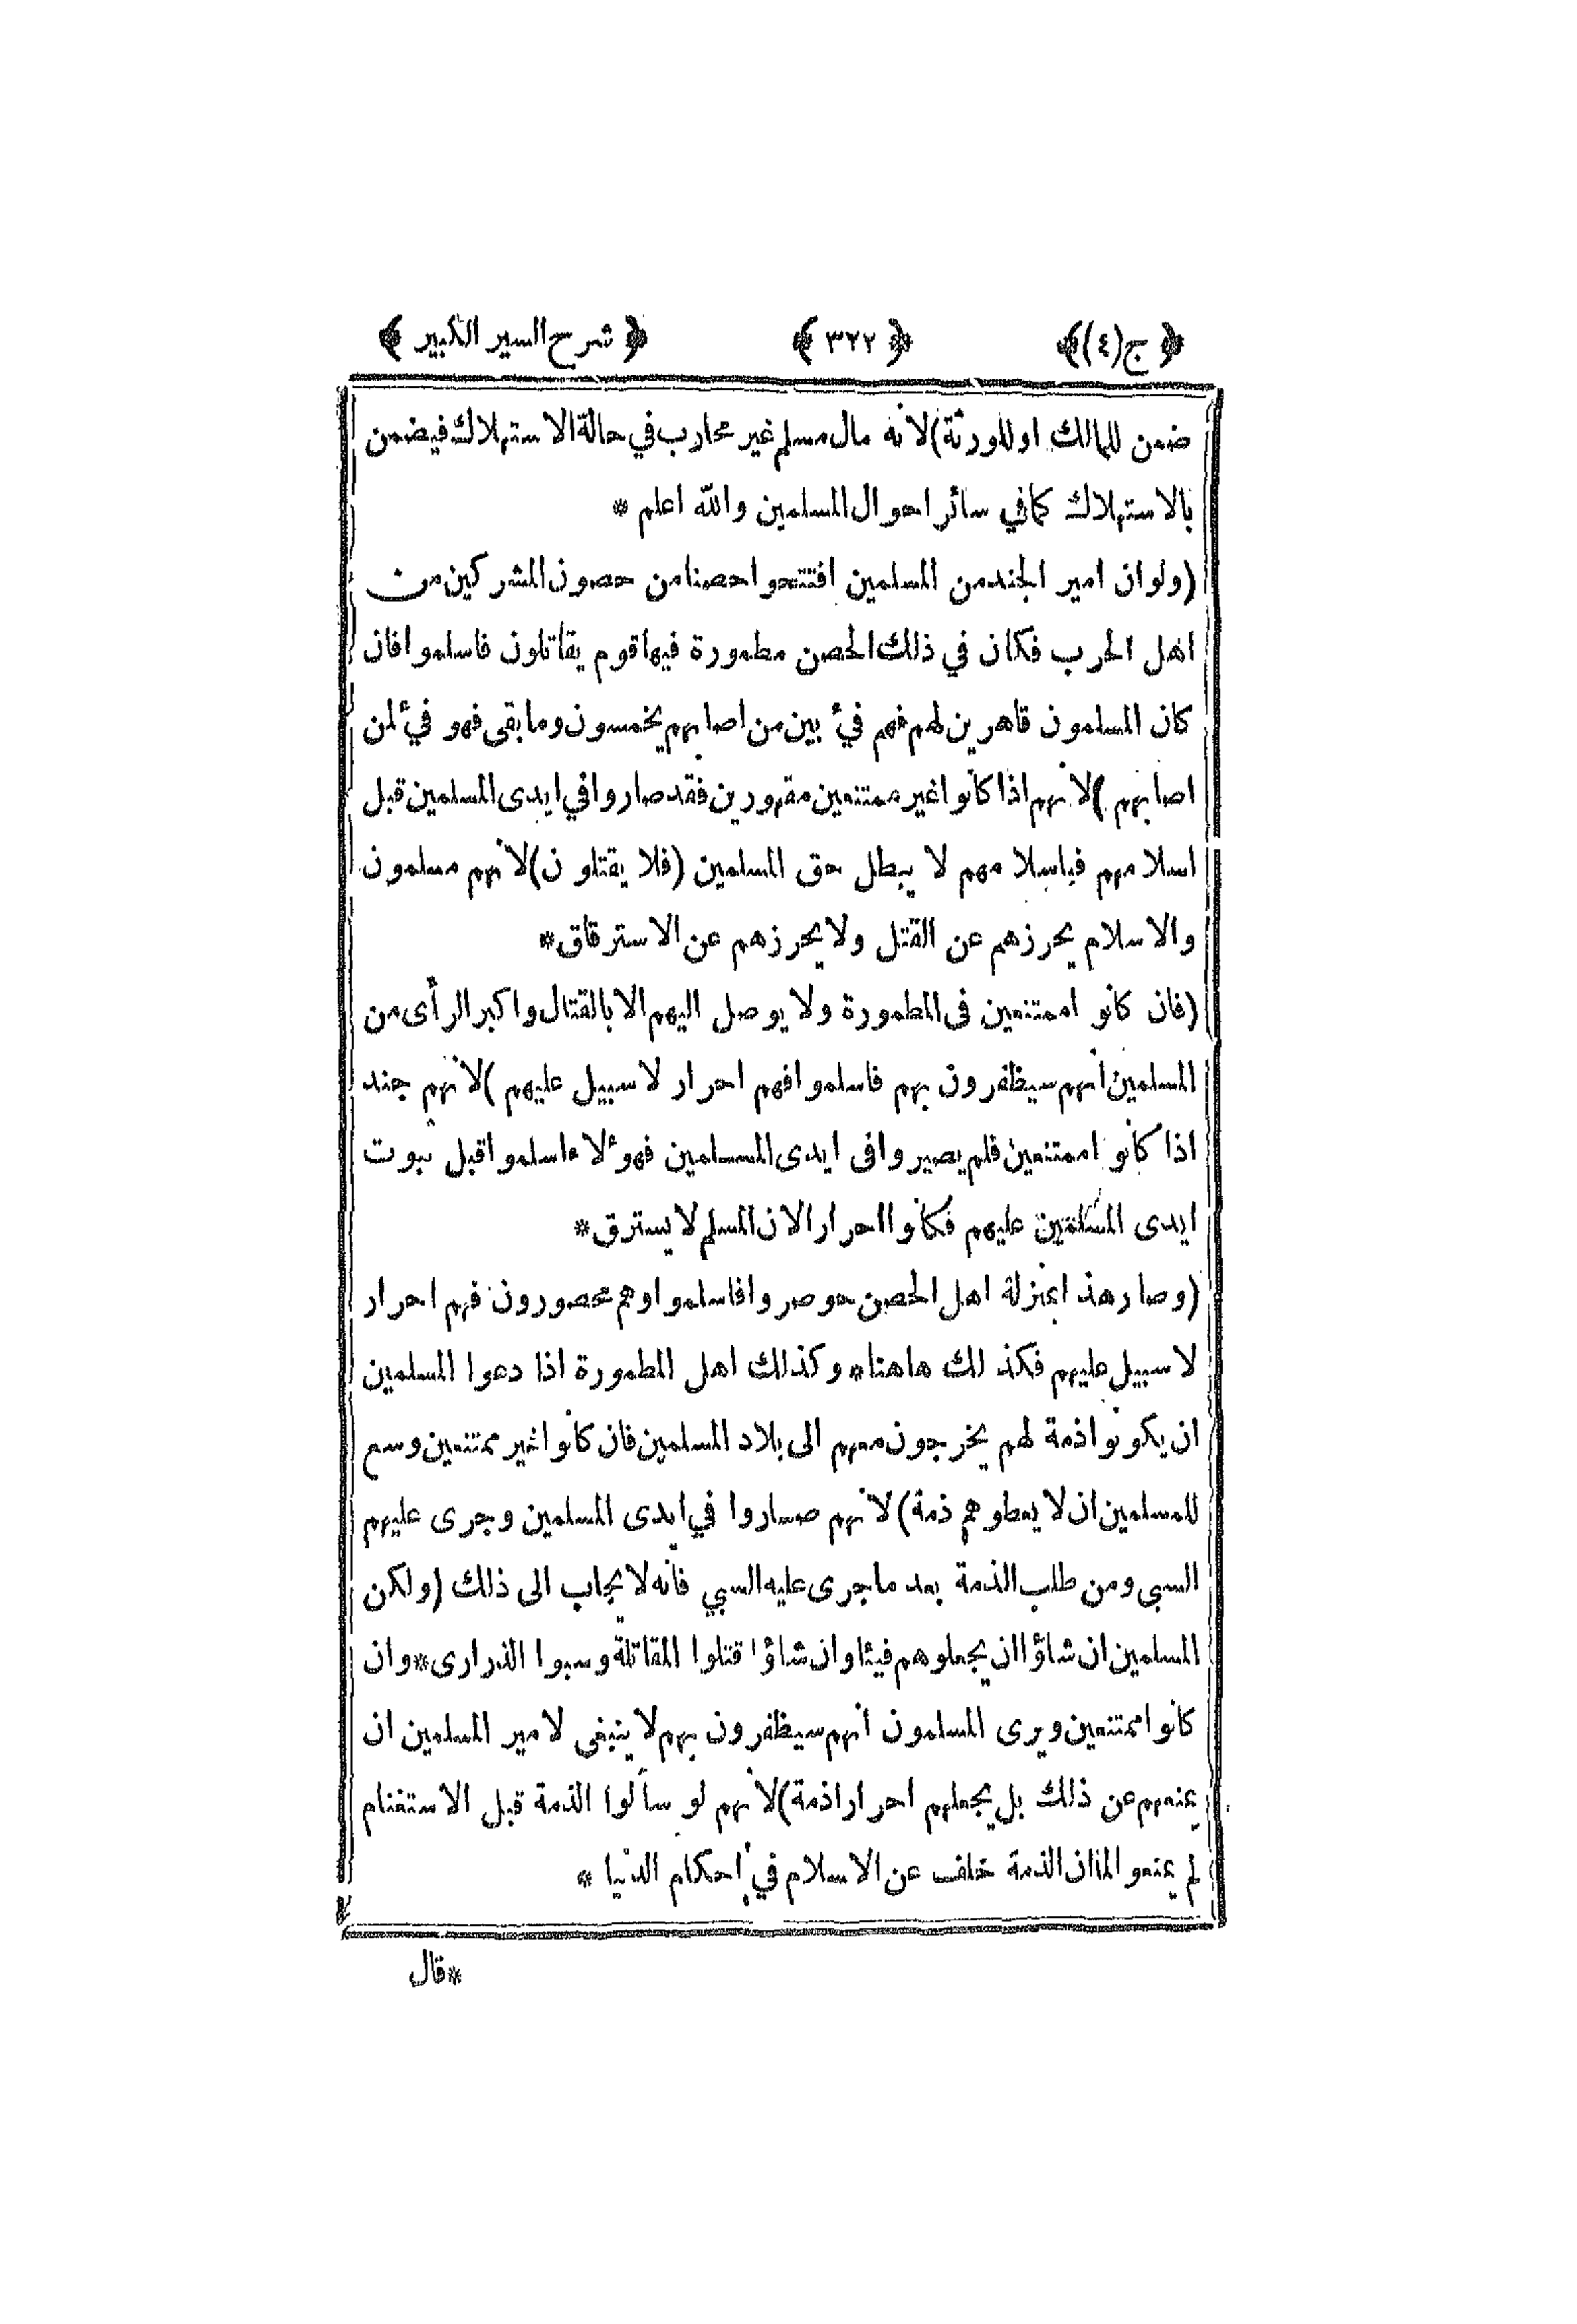 ﴿ ج(٤)﴾ ﴿ ٣٢٢ ﴾ ﴿ شرح السير الكبير ﴾
ضمن للمالك او للورثة)لانه مال مسلم غير محارب في حالة الاستهلاك فيضمن
بالاستهلاك كما في سائر احوال المسلمين والله اعلم *
(ولو ان امير الجند من المسلمين افتتحوا حصنا من حصون المشركين من
اهل الحرب فكان في ذلك الحصن مطمورة فيها قوم يقاتلون فاسلموا فان
كان المسلمون قاهرين لهم فهم فئ بين من اصابهم يخمسون وما بقى فهو فئ لمن
اصابهم )لانهم اذا كانوا غير ممتنعين مقهورين فقد صاروا في ايدى المسلمين قبل
اسلامهم فباسلامهم لا يبطل حق المسلمين (فلا يقتلون)لانهم مسلمون
والاسلام يحرزهم عن القتل ولا يحرزهم عن الاسترقاق*
(فان كانوا ممتنعين فى المطمورة ولا يوصل اليهم الا بالقتال واكبر الرأى من
المسلمين أنهم سيظفرون بهم فاسلموا فهم احرار لا سبيل عليهم )لانهم جند
اذا كانوا ممتنعين فلم يصيروا فى ايدى المسلمين فهؤلاء اسلموا قبل ثبوت
ايدى المسلمين عليهم فكانوا احرارا لان المسلم لا يسترق*
(وصار هذا بمنزلة اهل الحصن حوصروا فاسلموا وهم محصورون فهم احرار
لا سبيل عليهم فكذلك هاهنا* وكذلك اهل المطمورة اذا دعوا المسلمين
ان يكونوا ذمة لهم يخرجون معهم الى بلاد المسلمين فان كانوا غير ممتنعين وسع
للمسلمين ان لا يعطوهم ذمة) لانهم صاروا في ايدى المسلمين وجرى عليهم
السبى ومن طلب الذمة بعد ما جرى عليه السبي فانه لا يجاب الى ذلك (ولكن
المسلمين ان شاؤا ان يجعلوهم فيئا وان شاؤا قتلوا المقاتلة وسبوا الذرارى* وان
كانوا ممتنعين ويرى المسلمون انهم سيظفرون بهم لا ينبغى لامير المسلمين ان
يمنعهم عن ذلك بل يجعلهم احرارا ذمة)لانهم لو سألوا الذمة قبل الاستغنام
لم يمنعوا لما ان الذمة خلف عن الاسلام في احكام الدنيا *
*قال